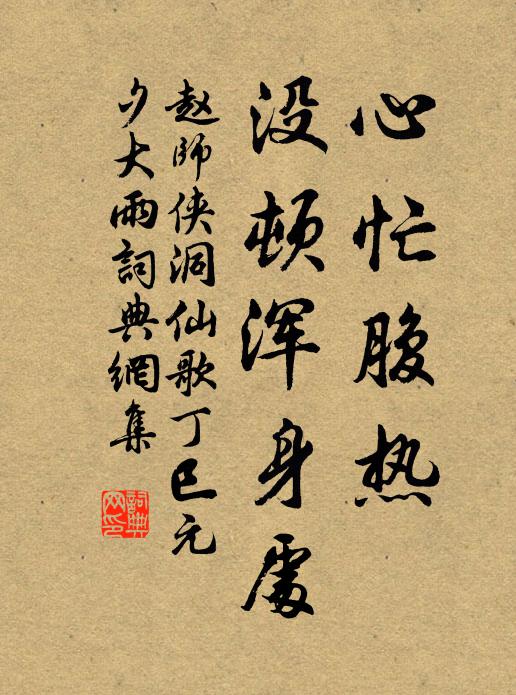 心忙腹热
没顿浑身處
赵師侠洞仙歌丁巳元
夕大雨詞典網集
詞典
网印